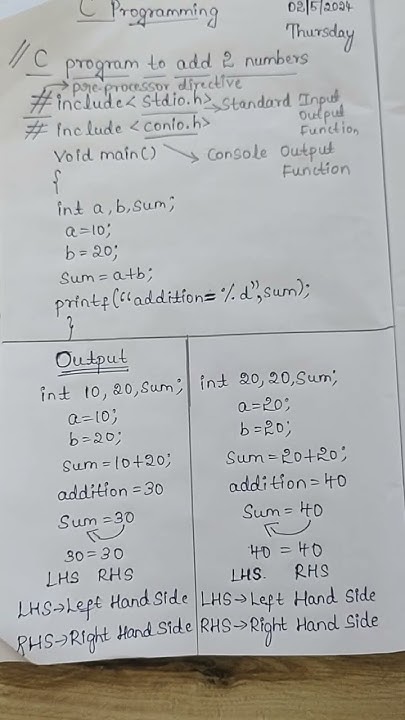 C Programming
02/5/2024
Thursday
// C program to add 2 numbers
→ pre processor directive
#include<stdio.h> → Standard Input Output Function
# include <conio.h> → Console Output Function
Void main()
{
int a,b,Sum;
a=10;
b=20;
Sum=a+b;
printf("addition=%d",sum);
}
Output
int 10, 20, Sum;
a=10;
b=20;
Sum=10+20;
addition=30
Sum=30
30=30
LHS RHS
LHS→Left Hand Side
RHS→Right Hand Side
int 20, 20, Sum;
a=20;
b=20;
Sum=20+20;
addition=40
Sum=40
40=40
LHS. RHS
LHS→Left Hand Side
RHS→Right Hand Side